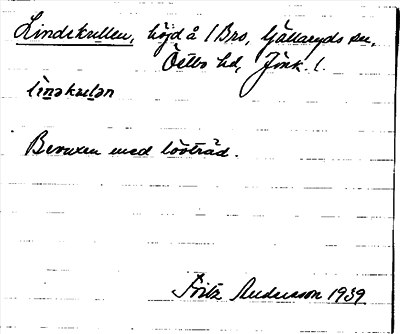 Lindskullen, höjd å 1 Bro, Gällaryds sn,
Östbo hd, Jönk. l.
Bevuxen med lövträd.
Fritz Andersson 1939